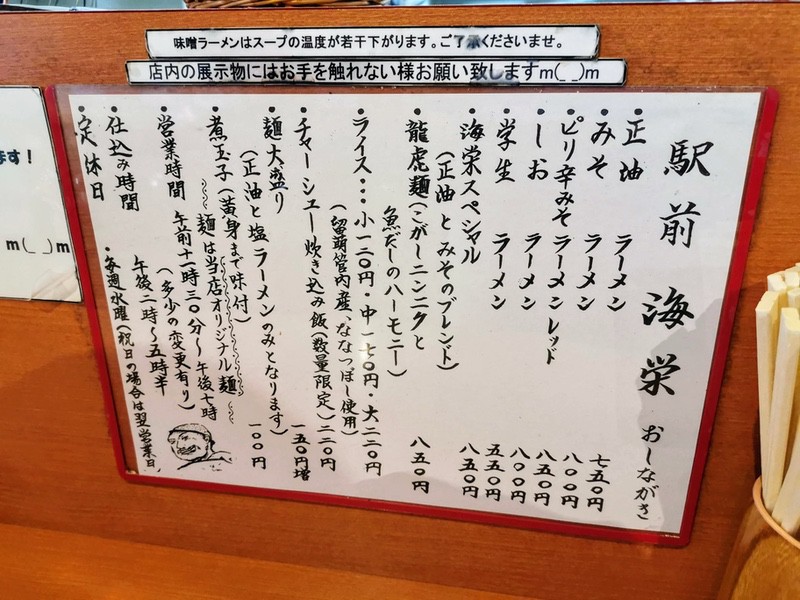 味噌ラーメンはスープの温度が若干下がります。ご了承くださいませ。
店内の展示物にはお手を触れない様お願い致しますm(_ _)m
駅前 海栄 おしながき
・正油 ラーメン 七五〇円
・みそ ラーメン 八〇〇円
・ピリ辛みそ ラーメンレッド 八五〇円
・しお ラーメン 八〇〇円
・学生 ラーメン 五五〇円
・海栄スペシャル 八五〇円
(正油とみそのブレンド)
・龍虎麺(こがしニンニクと 八五〇円
魚だしのハーモニー)
・ライス・・・小一二〇円・中一七〇円・大二二〇円
(留萌管内産、ななつぼし使用)
・チャーシュー炊き込み飯(数量限定)二二〇円
・麺大盛り 一五〇円増
(正油と塩ラーメンのみとなります)
・煮玉子(黄身まで味付) 一〇〇円
麺は当店オリジナル麺
・営業時間 午前十一時三〇分〜午後七時
(多少の変更有り)
・仕込み時間 午後二時〜五時半
・定休日 ・毎週水曜(祝日の場合は翌営業日
ます!
m(_ _)m